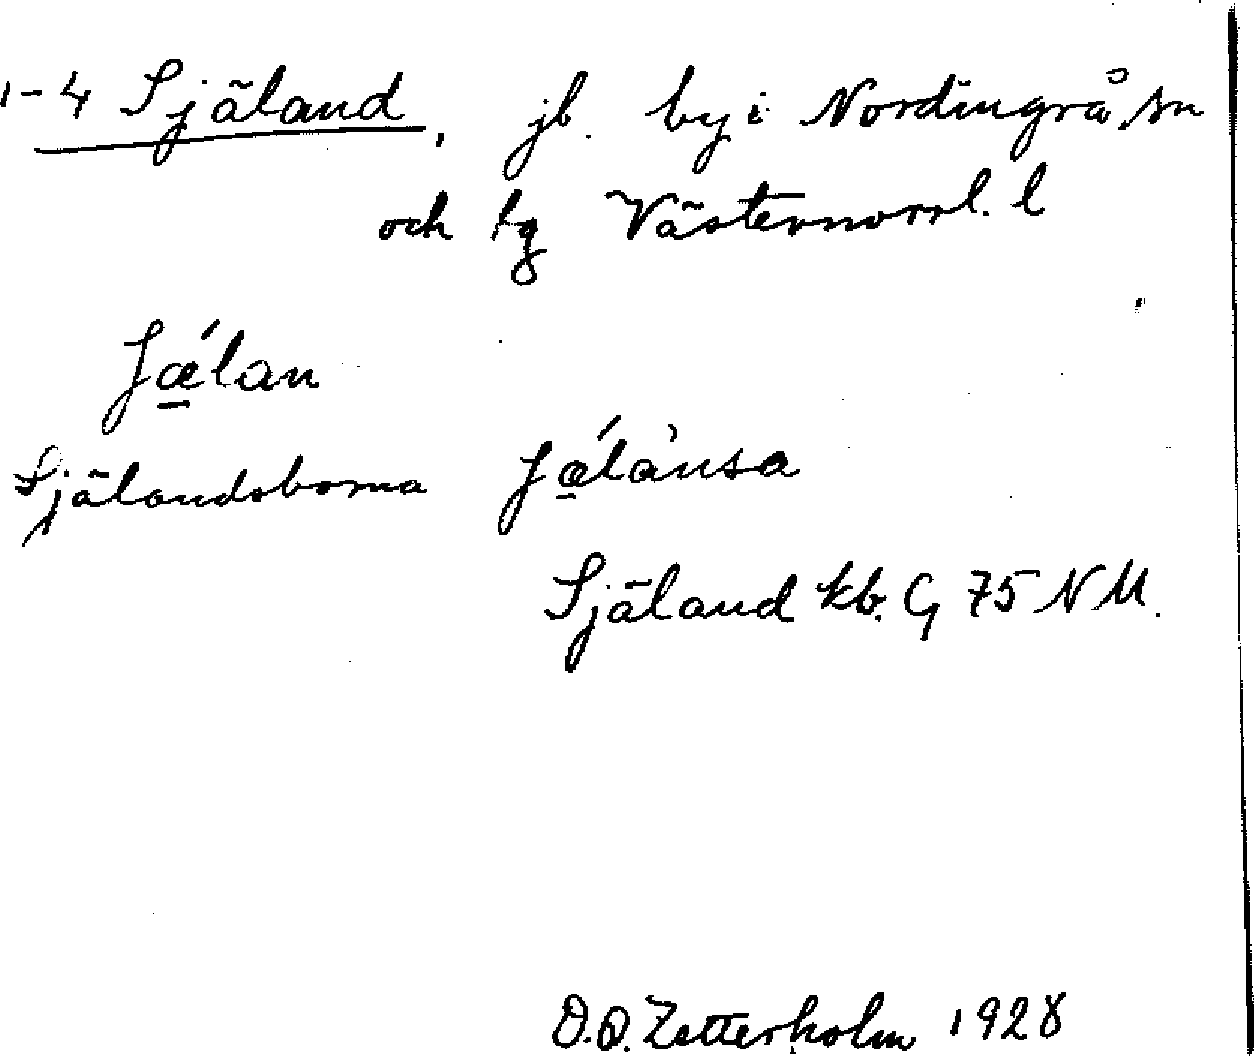 1-4 Själand, jb. by i Nordingrå sn
och tg Västernorrl. l
ʃǽ̱lan
Själandsborna ʃǽ̱lànsa
Själand kb. G 75 NM.
D.O. Zetterholm 1928